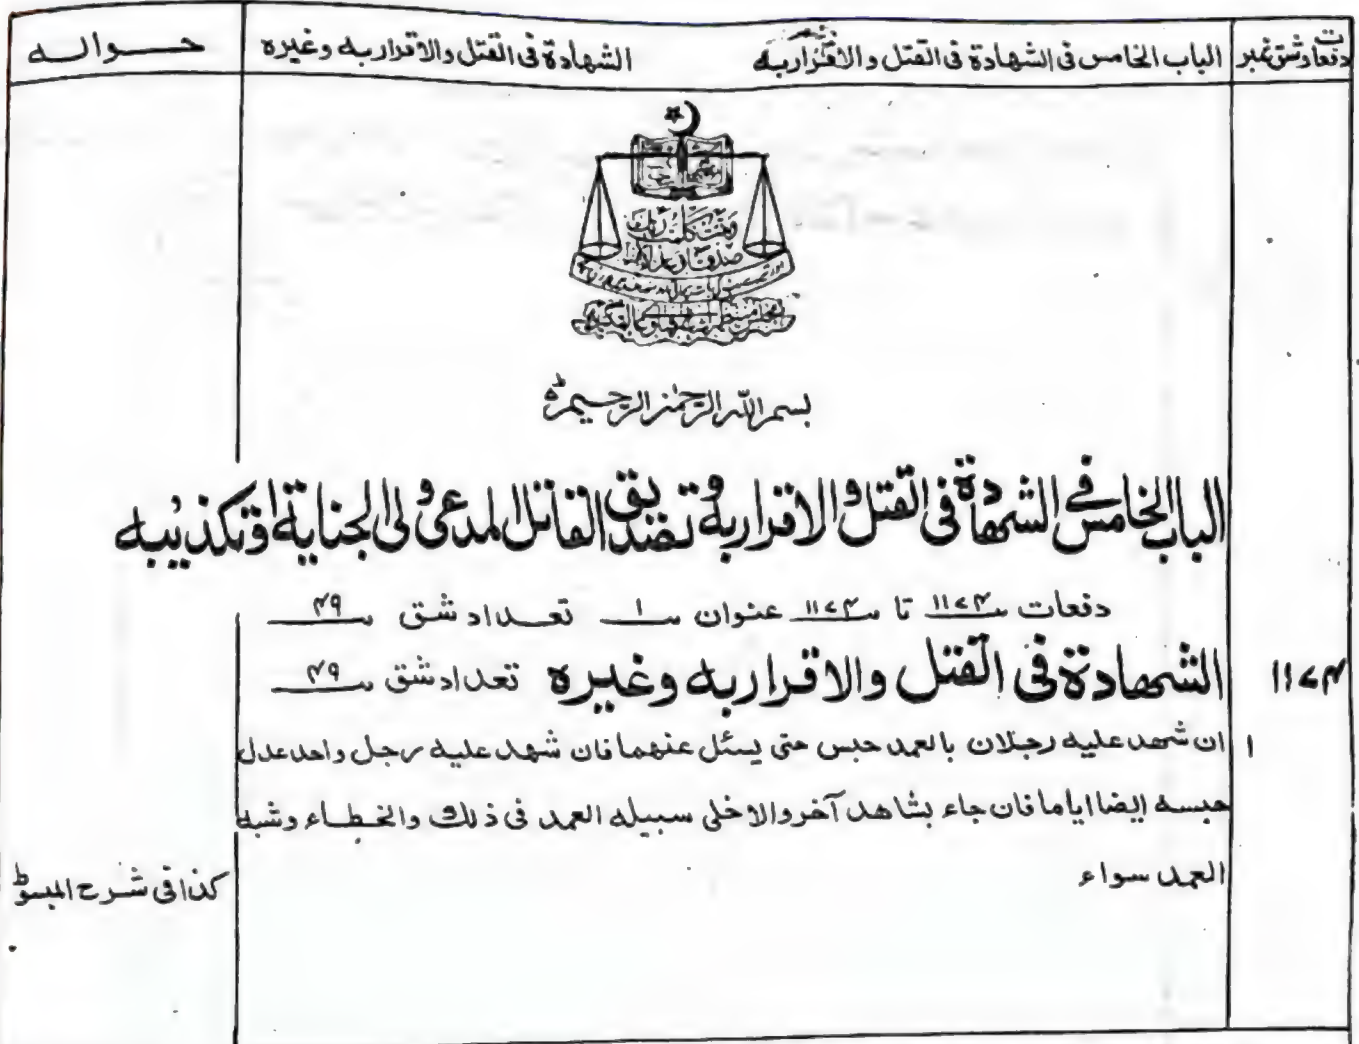 دفعات وشق نمبر
الباب الخامس فی الشهادة فی القتل والاقرار به
الشهادة فی القتل والاقرار به وغیره
حواله
وتمت كلمت ربك
صدقا وعدلا
بسم الله الرحمن الرحیم
الباب الخامس فی الشهادة فی القتل والاقرار به وتصدیق القاتل المدعی ولی الجنایة او تکذیبه
دفعات ۱۱۷۴ تا ۱۱۷۴ عنوان ۱ تعداد شق ۴۹
۱۱۷۴ الشهادة فی القتل والاقرار به وغیره تعداد شق ۴۹
۱ ان شهد علیه رجلان بالعمد حبس حتی یسئل عنهما فان شهد علیه رجل واحد عدل
حبسه ایضا ایاما فان جاء بشاهد آخر والا خلی سبیله العمد فی ذلك والخطاء وشبه
العمد سواء
کذا فی شرح المبسوط